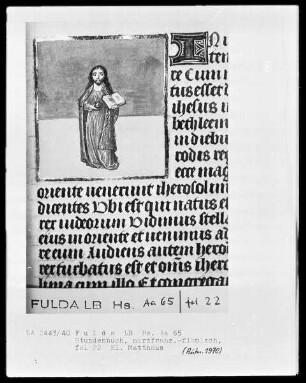 In
te
re Cum
tus esset d
ihesus in
bethleem
in diebus
rodis reg
ecce mag
oriente venerunt iherosolim
dicentes Ubi est qui natus e
rex iudeorum Vidimus stella
eius in oriente et venimus ad
re eum Audiens autem hero
rex turbatus est et omis ihero
lima cum illo Et congregans
FULDA LB Hs. Aa 65 fol 22
LA 2443/40 F u l d a LB Hs. Aa 65
Stundenbuch, nordfranz.-flämisch,
fol 22 Hl. Matthäus
(Aufn. 1970)